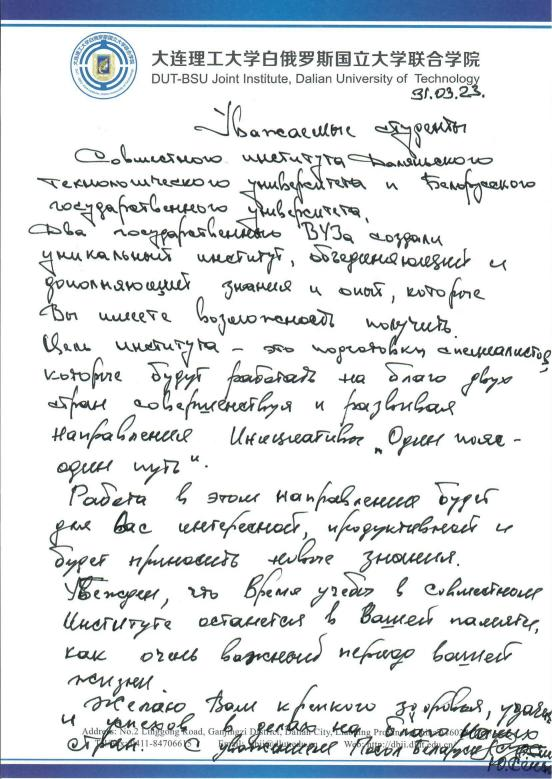 大连理工大学白俄罗斯国立大学联合学院
DUT-BSU Joint Institute, Dalian University of Technology
31.03.23.
Уважаемые студенты
Совместного института Даляньского
технологического университета и Белорусского
государственного университета.
Два государственных ВУЗа создали
уникальный институт, объединяющий и
дополняющий знания и опыт, которые
Вы имеете возможность получить.
Цель института – это подготовка специалистов,
которые будут работать на благо двух
стран совершенствуя и развивая
направления Инициативы „Один пояс -
один путь".
Работа в этом направлении будет
для Вас интересной, продуктивной и
будет приносить новые знания.
Убежден, что время учебы в Совместном
Институте останется в Вашей памяти,
как очень важный период вашей
жизни.
Желаю Вам крепкого здоровья, удачи
и успехов в делах на благо наших
стран. С уважением Посол Беларуси
Address: No.2 Linggong Road, Ganjingzi District, Dalian City, Liaoning
0411-84706615 Web: http://dbji.dlut.edu.cn